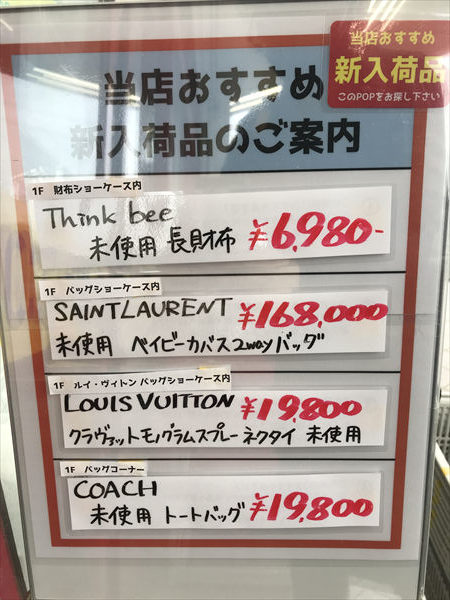 当店おすすめ
新入荷品
このPOPをお探し下さい
当店おすすめ
新入荷品のご案内
1F 財布ショーケース内
Think bee
未使用 長財布 ¥6,980-
1F バッグショーケース内
SAINT LAURENT ¥168,000
未使用 ベイビーカバス2wayバッグ
1F ルイ・ヴィトン バッグショーケース内
LOUIS VUITTON ¥19,800
クラヴァットモノグラムスプレー ネクタイ 未使用
1F バッグコーナー
COACH
未使用 トートバッグ ¥19,800